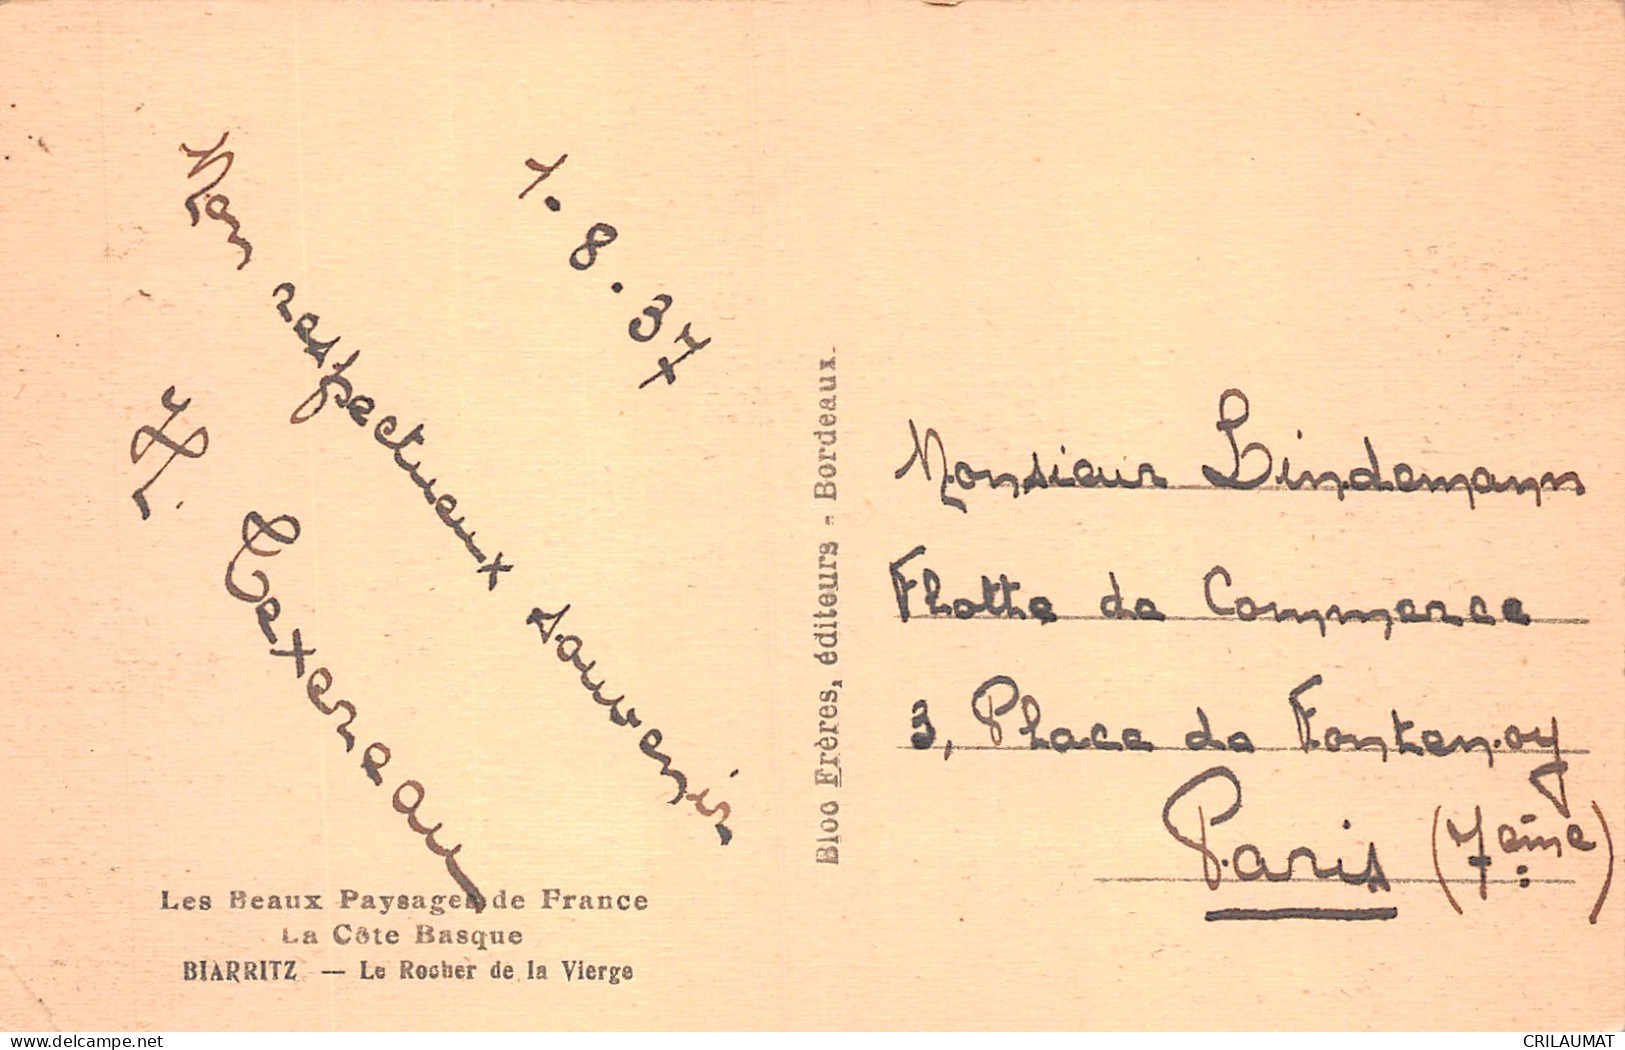 1.8.37
Mon respectueux souvenir
Texereau
Les Beaux Paysages de France
La Côte Basque
BIARRITZ — Le Rocher de la Vierge
Bloc Frères, éditeurs - Bordeaux.
Monsieur Lindemann
Flotte de Commerce
3, Place de Fontenoy
Paris (7eme)
www.delcampe.net
CRILAUMAT